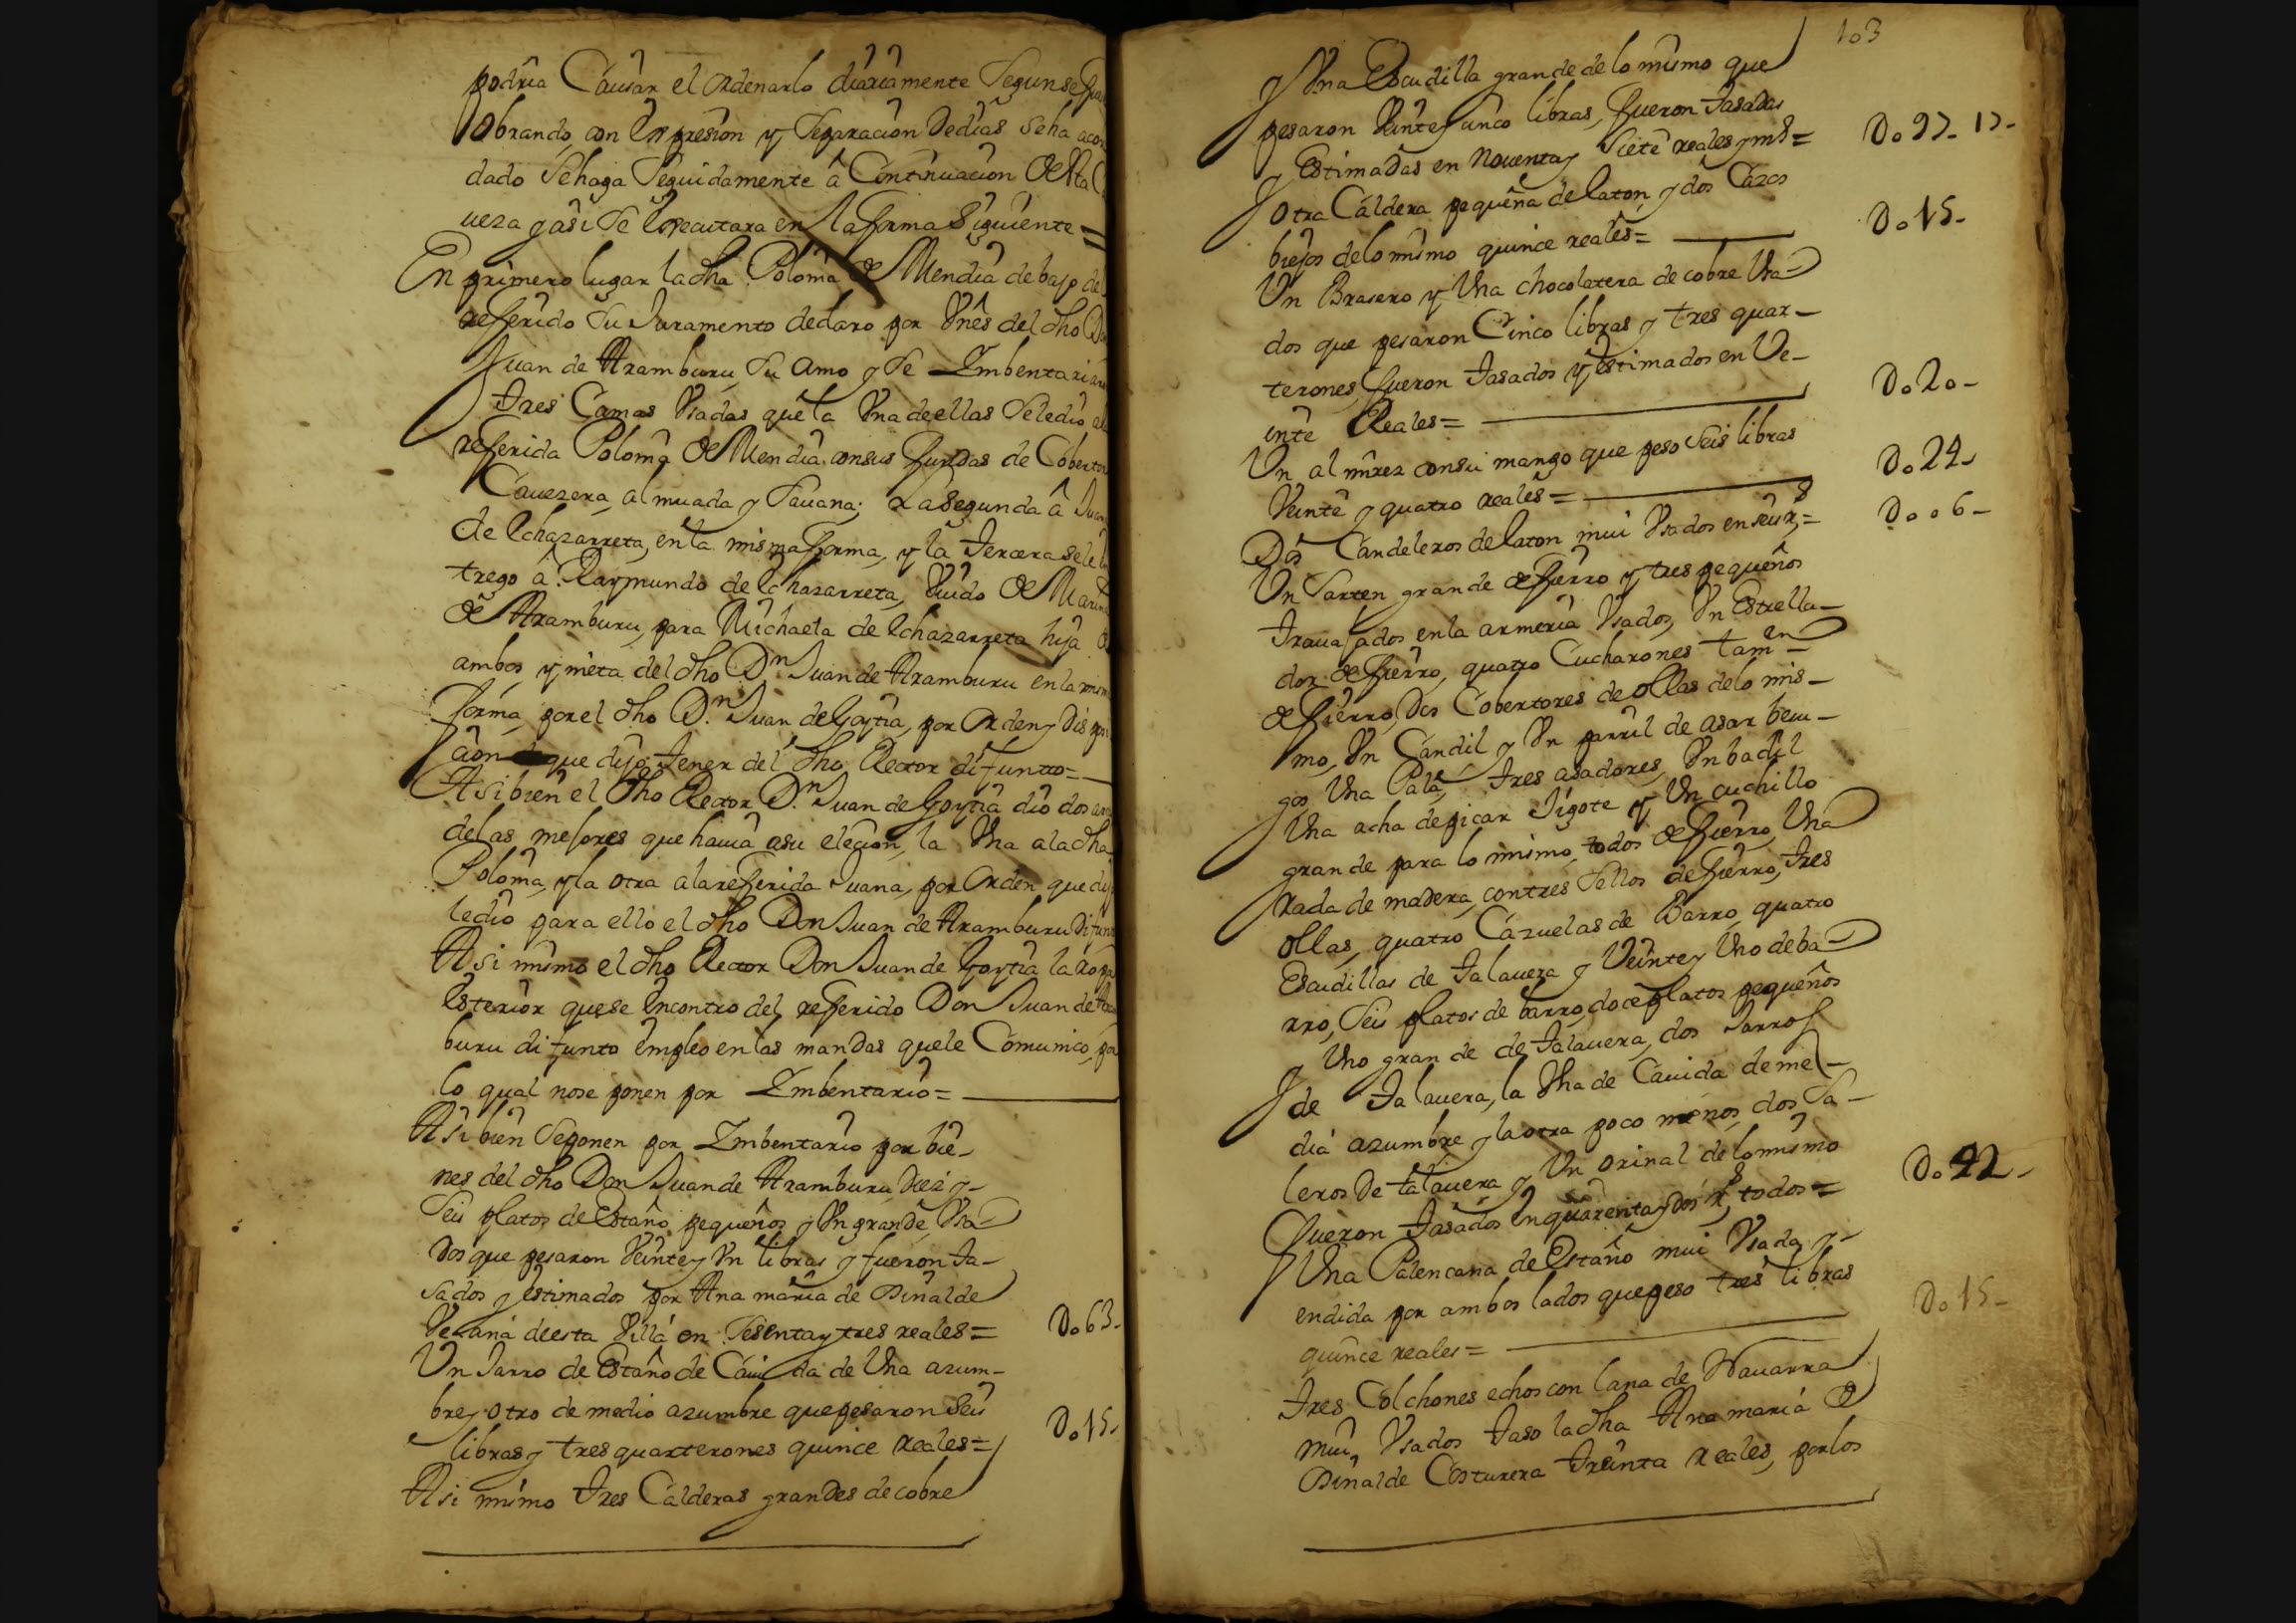 podria Causar el ordenarlo diariamente Segun se fue
Obrando, con Expresion y Separacion de dias se ha acor
dado Se haga Seguidamente â Continuacion de esta Ca
veza y asi Se executara en la forma Siguiente =
En primero lugar la dha Poloma de Mendia debajo del
referido Su Juramento declaro por Vnes del dho Dn
Juan de Aramburu, Su Amo y Se Imbentariaron
tres Camas Vsadas que la Vna de ellas Se le dio a la
referida Poloma de Mendia con sus fundas de Cobertor
Cavezera, almuada y Savana; La Segunda â Juana
de Echazarreta, en la misma forma, y la Tercera se le en
trego â Raymundo de Echazarreta, Viudo de Marina
de Aramburu, para Michaela de Echazarreta hija de
ambos y nieta del dho Dn Juan de Aramburu en la misma
forma, por el dho Dn Juan de Goytia, por orden y Dispoςi
cion que dijo Tener del dho Rector difunto =
Asi bien el dho Rector Dn Juan de Goytia dio dos arcas
de las mejores que havia a su elecion, la Vna a la dha
Poloma, y la otra a la referida Juana, por Orden que dijo
le dio para ello el dho Don Juan de Aramburu Difunto
Asi mismo el dho Rector Don Juan de Goytia la ropa
Esterior que se Encontro del referido Don Juan de Aram
buru difunto empleo en las mandas que le Comunico, por
lo qual no se ponen por Imbentario =
Asi bien Se ponen por Imbentario por bie-
nes del dho Don Juan de Aramburu Diez y-
Seis platos de Estaño pequeños y Vn grande, Vsa-
dos que pesaron Veinte y Vn libras y fueron Ta-
sados y Estimados por Ana maria de Pinalde
Vecina de esta Villa en Sesenta y tres reales = Do 63-
Un Jarro de Estaño de Cavida de Una azum-
bre y otro de medio azumbre que pesaron Seis
libras y tres quarterones quince Reales = Do 15-
Asi mismo Tres Calderas grandes de cobre
103
y Vna Escudilla grande de lo mismo que
pesaron Veinte y cinco libras, fueron Tasadas
y Estimadas en noventa y Siete reales y mº = Do 97- 17-
y otra Caldera pequeña de laton, y dos Cazos
biejos de lo mismo quince reales = Do 15-
Un Brasero y Vna chocolatera de cobre Vsa-
dos que pesaron Cinco libras y tres quar-
terones, fueron Tasados y Estimados en Ve-
inte Reales = Do 20-
Un almirez con su mango que peso Seis libras
Veinte y quatro reales = Do 24-
Dos Candeleros de laton mui Vsados en seis rs = Do 06-
Un Sarten grande de fierro y tres pequeños
Travajados en la armeria Vsados, Vn Estrella-
dor de fierro, quatro Cucharones tamen
de fierro, Dos Cobertores de ollas de lo mis-
mo, Vn Candil y Vn parril de asar bem-
gos, Vna Pala, Tres asadores, Vn badil
Una acha de picar Jigote y Un cuchillo
grande para lo mismo, todos de fierro, Una
rada de madera, con tres Sellos de fierro, Tres
ollas, quatro Cazuelas de Barro, quatro
Escudillas de Talavera y Veinte y Uno de ba-
rro, Seis platos de barro, doce platos pequeños
y Uno grande de Talavera, dos Jarros
de Talavera, la Vna de Cavida de me-
dia azumbre y la otra poco menos, dos Sa-
leros de talavera y Un orinal de lo mismo
fueron Tasados en quarenta y dos rs todos = Do 42-
Una Palencana de Estaño mui Vsada y-
endida por ambos lados que peso tres libras
quince reales = Do 15-
Tres Colchones echos con lana de Navarra
mui Vsados Taso la dha Ana maria de
Pinalde Costurera Treinta Reales, por los